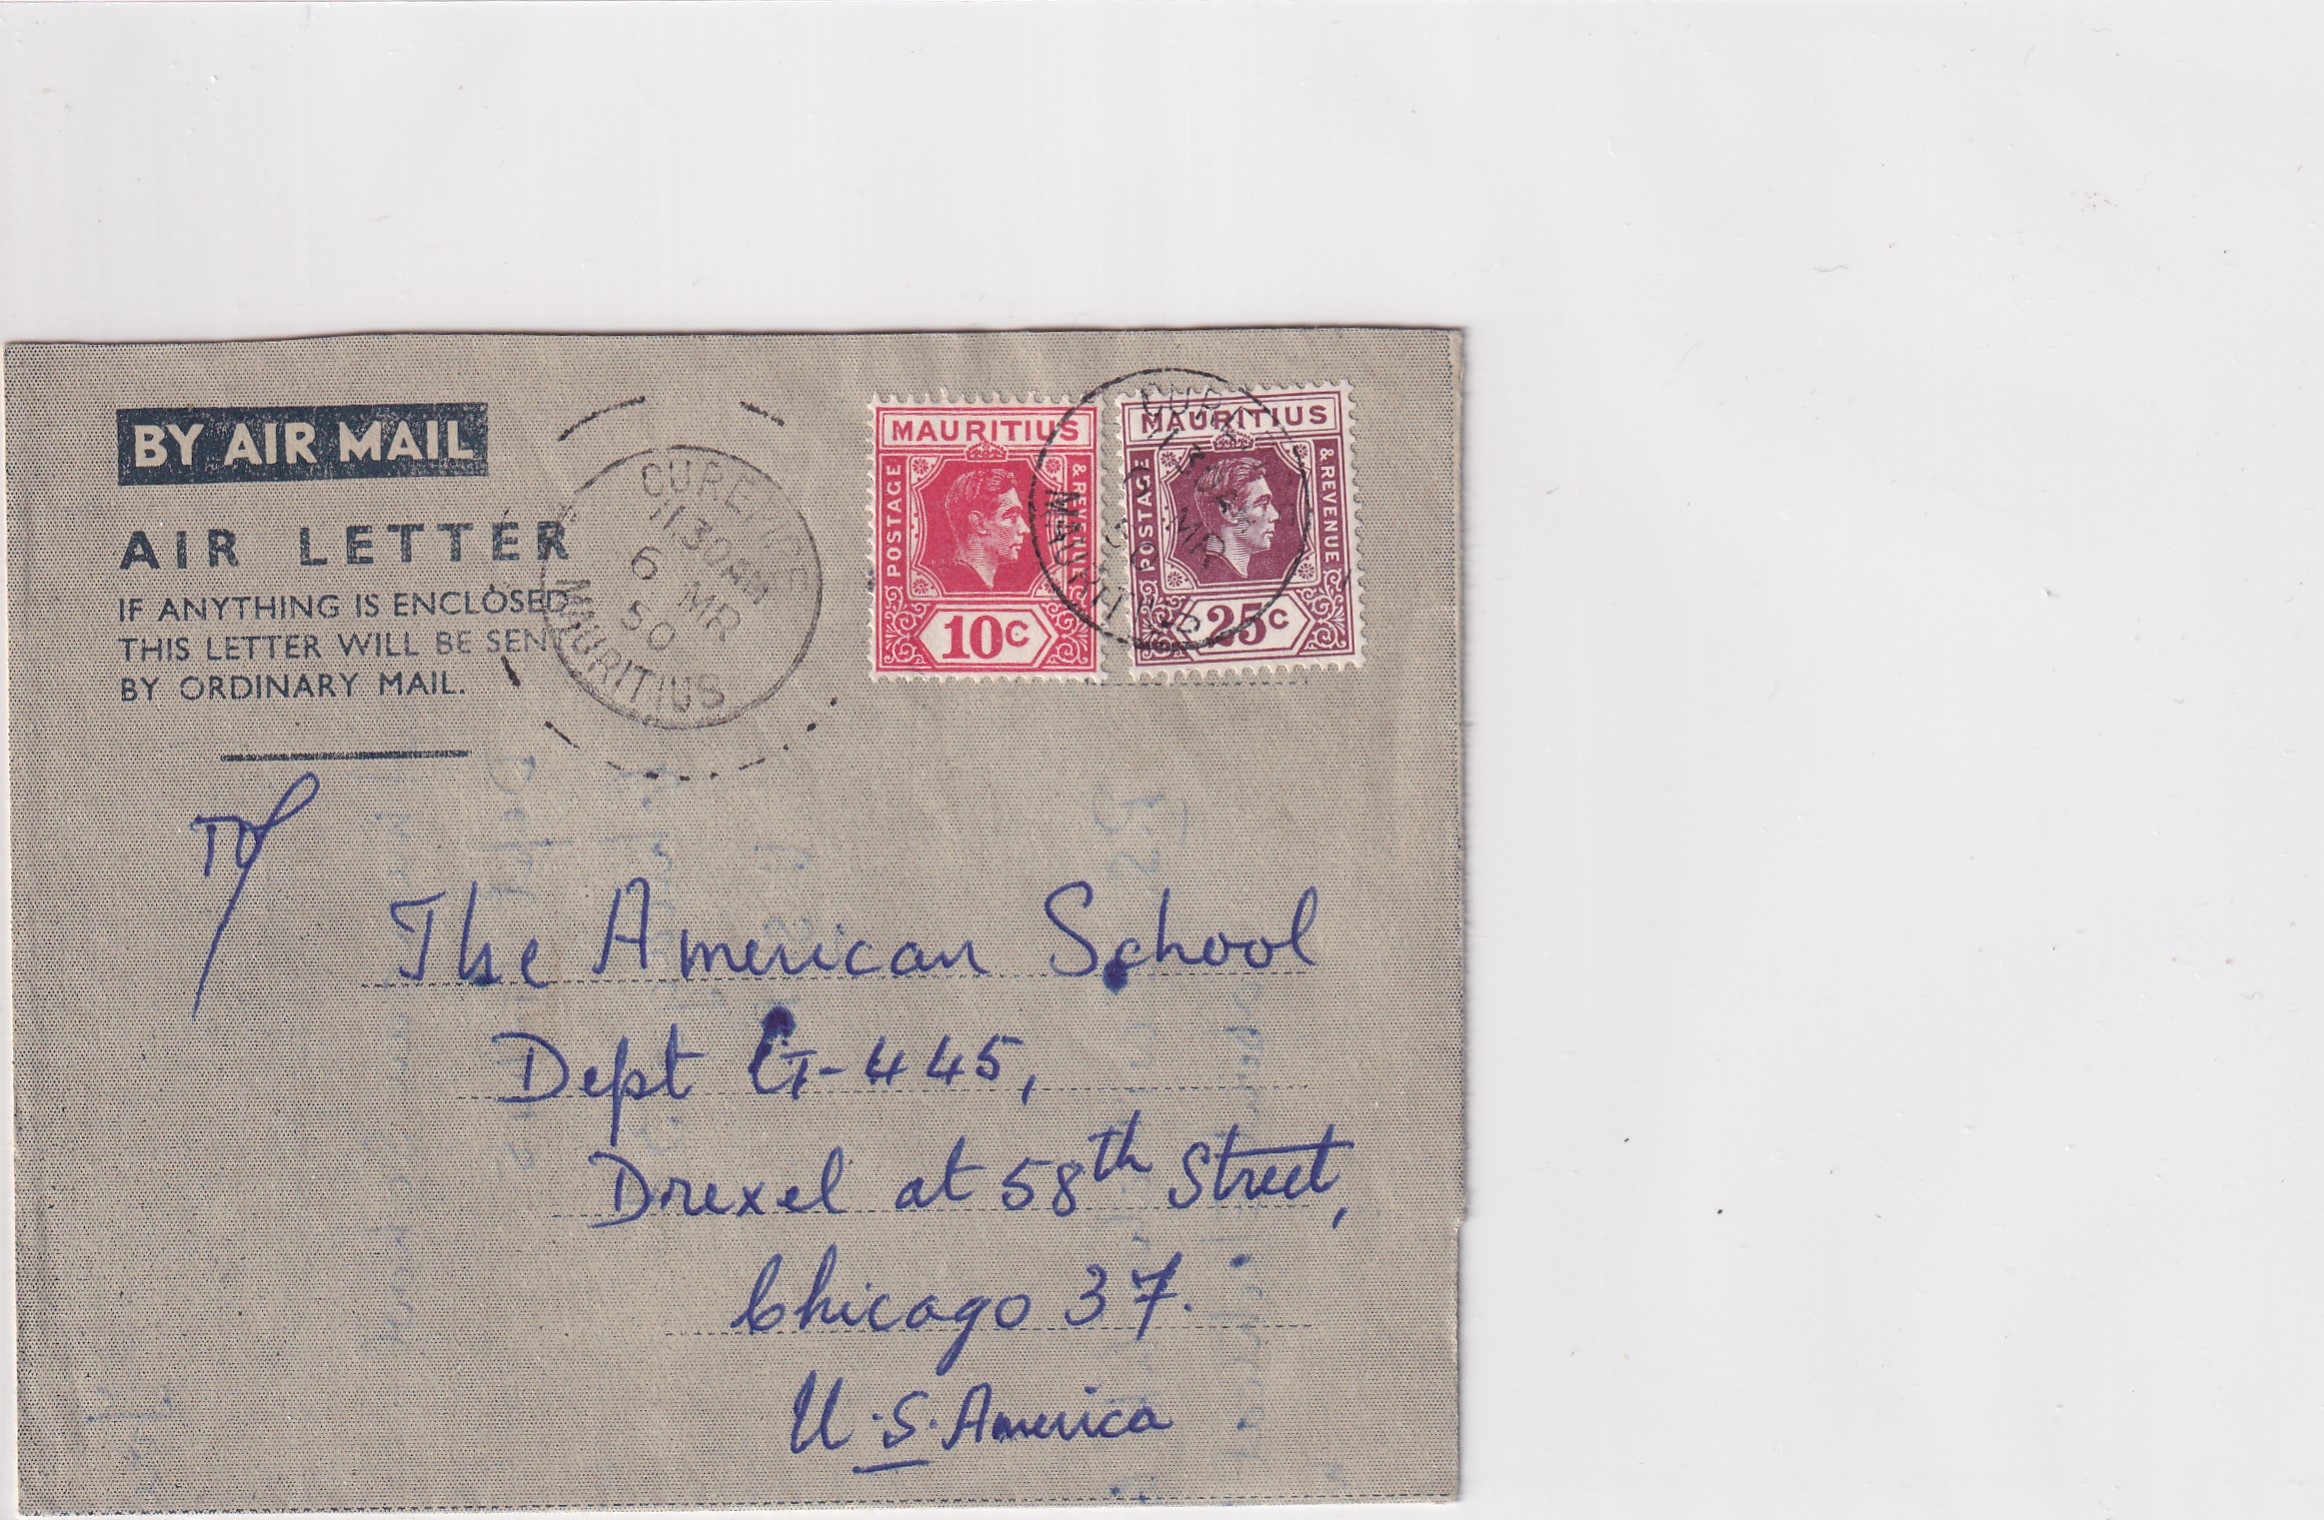 BY AIR MAIL
AIR LETTER
IF ANYTHING IS ENCLOSED
THIS LETTER WILL BE SENT
BY ORDINARY MAIL.
CUREPIPE
1130AM
6 MR
50
MAURITIUS
MAURITIUS
POSTAGE & REVENUE
10c
MAURITIUS
POSTAGE & REVENUE
25c
MR
MAURITIUS
To
The American School
Dept G-445,
Drexel at 58th Street,
Chicago 37.
U.S. America